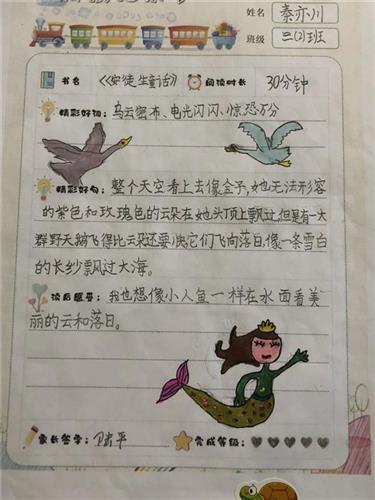 姓名 秦亦川
班级 三(2)班
书名 《安徒生童话》 阅读时长 30分钟
精彩好词: 乌云密布、电光闪闪、惊恐万分
精彩好句: 整个天空看上去像金子,她无法形容
的紫色和玫瑰色的云朵在她头顶上飘过,但是有一大
群野天鹅飞得比云朵还要快,它们飞向落日,像一条雪白
的长纱飘过大海。
读后感受: 我也想像小人鱼一样在水面看美
丽的云和落日。
家长签字: 完成等级: